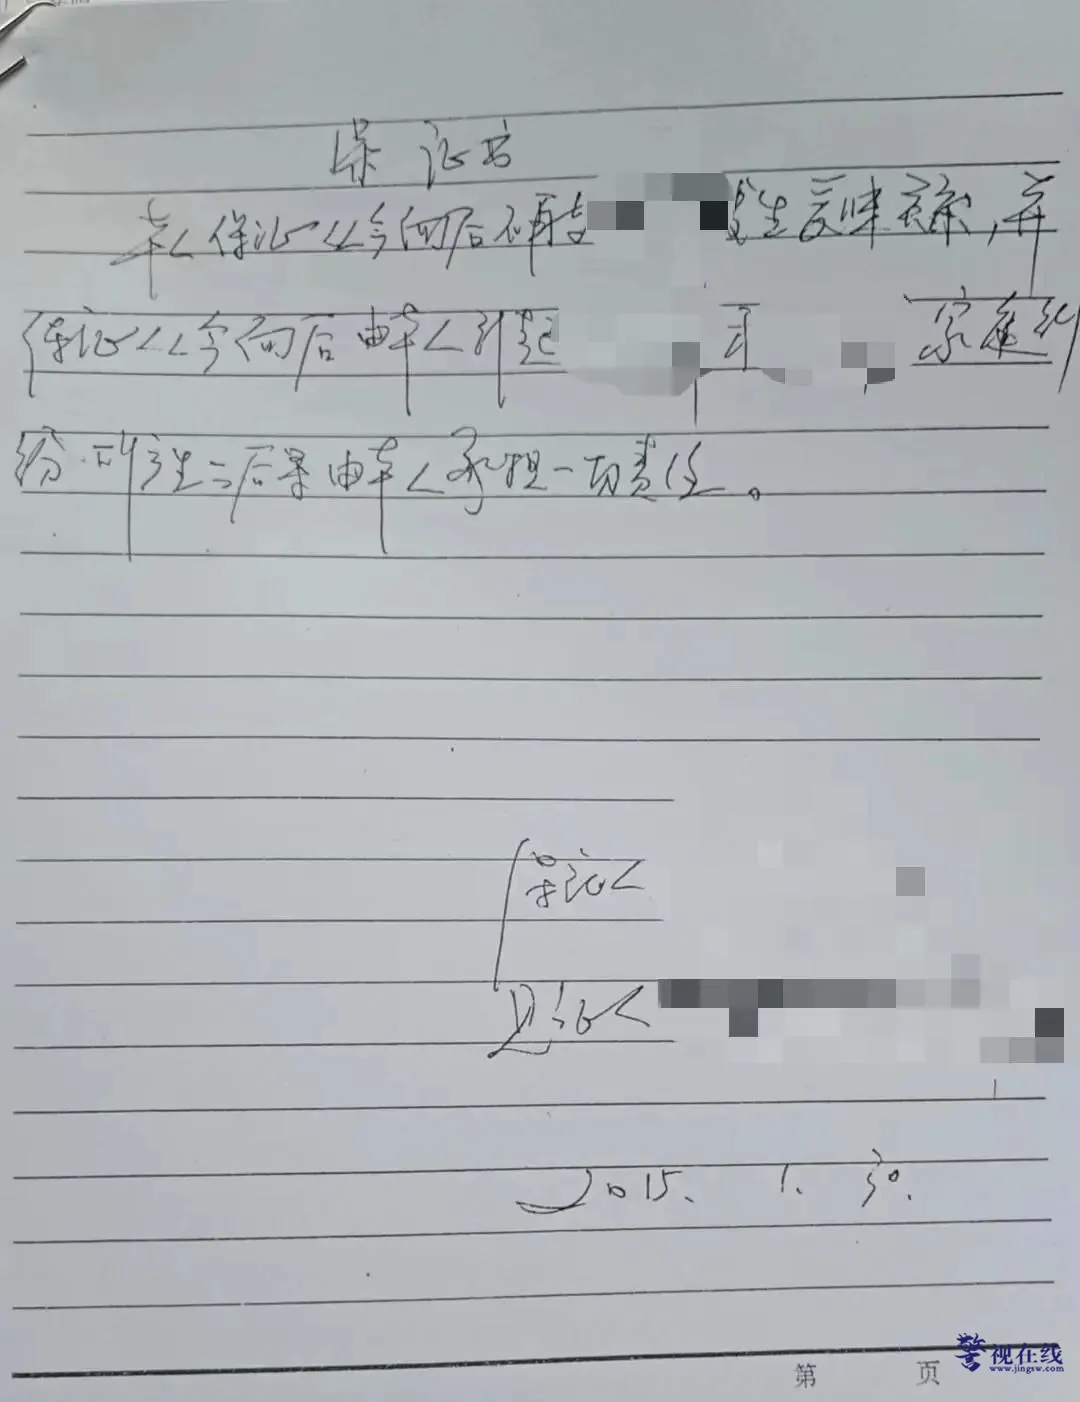 保证书
本人保证从今向后不再与 发生爱昧关系，并
保证从今向后由本人引起 家庭纠
纷所产生二后果由本人承担一切责任。
保证人
见证人
2015. 1. 30.
第 页
警视在线
www.jingsw.com